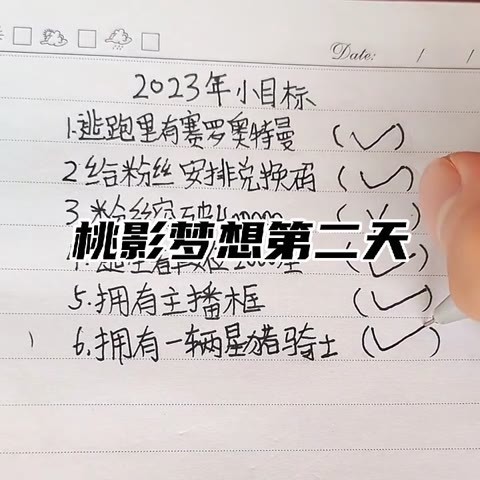 Date: / /
2023年小目标
1.逃跑里有赛罗奥特曼 (✓)
2.给粉丝安排兑换码 (✓)
3.粉丝 (✓)
桃影梦想第二天
5.拥有主播框 (✓)
6.拥有一辆星猪骑士 (✓)